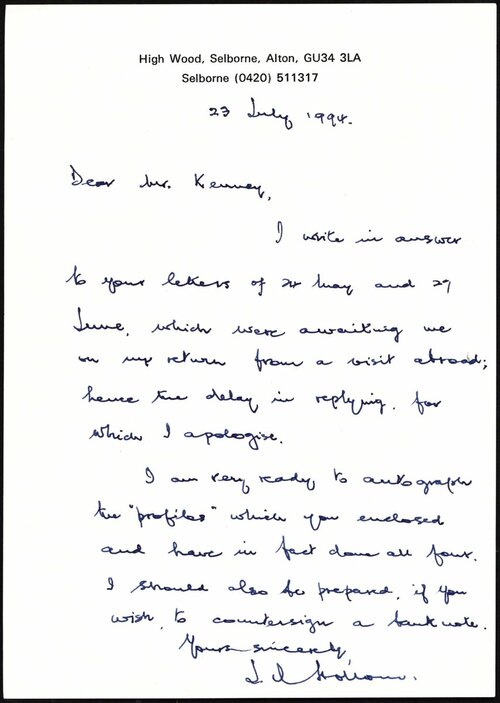 High Wood, Selborne, Alton, GU34 3LA
Selborne (0420) 511317
23 July 1994.
Dear Mr. Kenney,
I write in answer
to your letters of 24 May and 29
June, which were awaiting me
on my return from a visit abroad;
hence the delay in replying, for
which I apologise.
I am very ready to autograph
the "profiles" which you enclosed
and have in fact done all four.
I should also be prepared, if you
wish, to countersign a bank note.
Yours sincerely,
J. Q. Hollom.